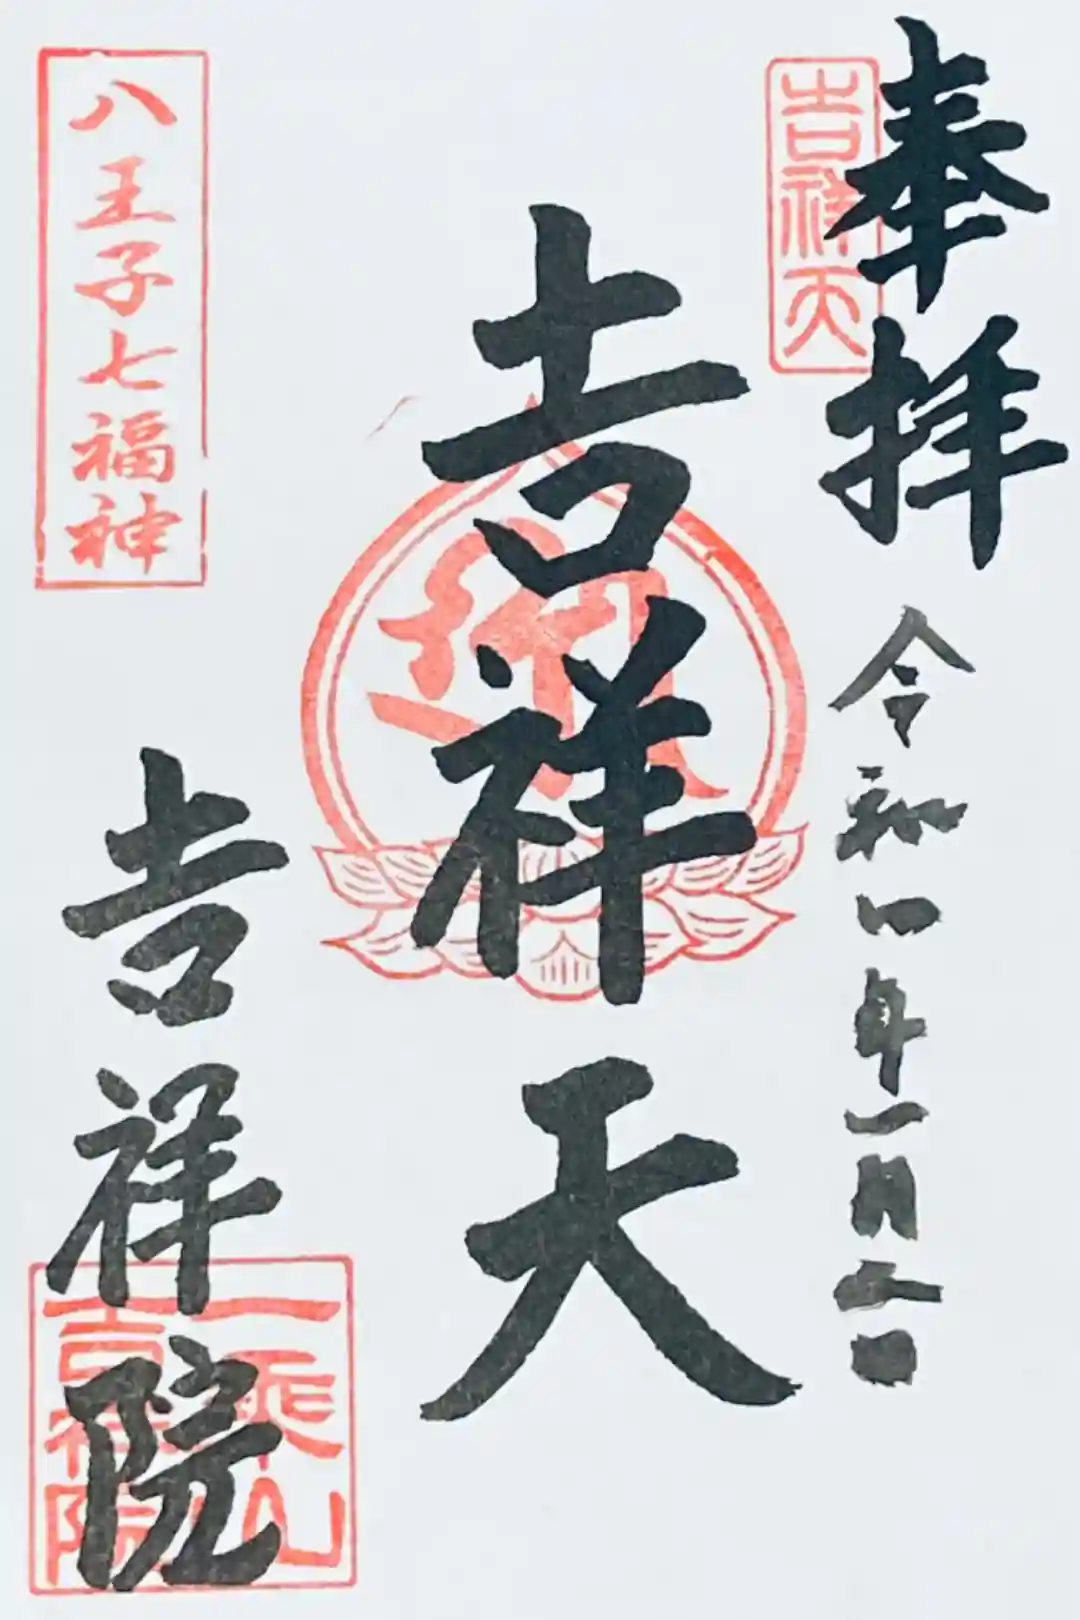 奉拝
吉祥天
令和二年一月六日
吉祥天
八王子七福神
吉祥院
一乗山
吉祥院